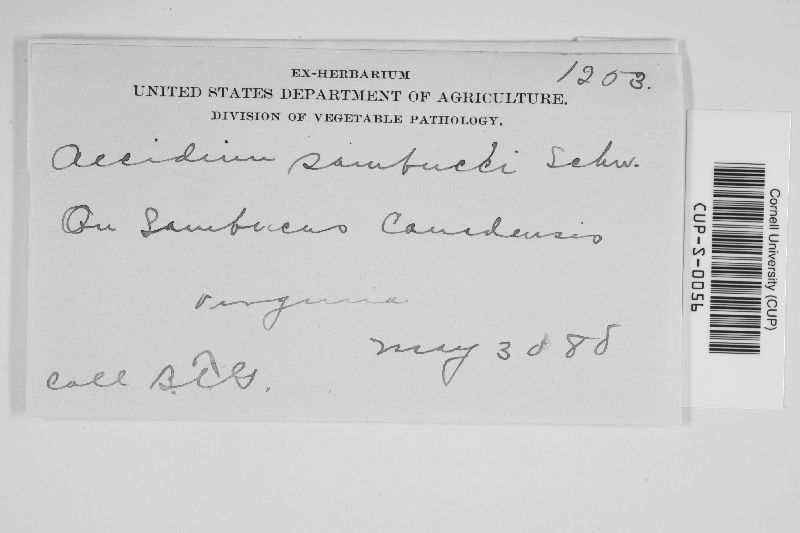 EX-HERBARIUM
1203.
UNITED STATES DEPARTMENT OF AGRICULTURE.
DIVISION OF VEGETABLE PATHOLOGY.
Aecidium sambuchi Schw.
On Sambucus Canadensis
Virginia
May 30 88
Coll B.T.G.
Cornell University (CUP)
CUP-S-0056